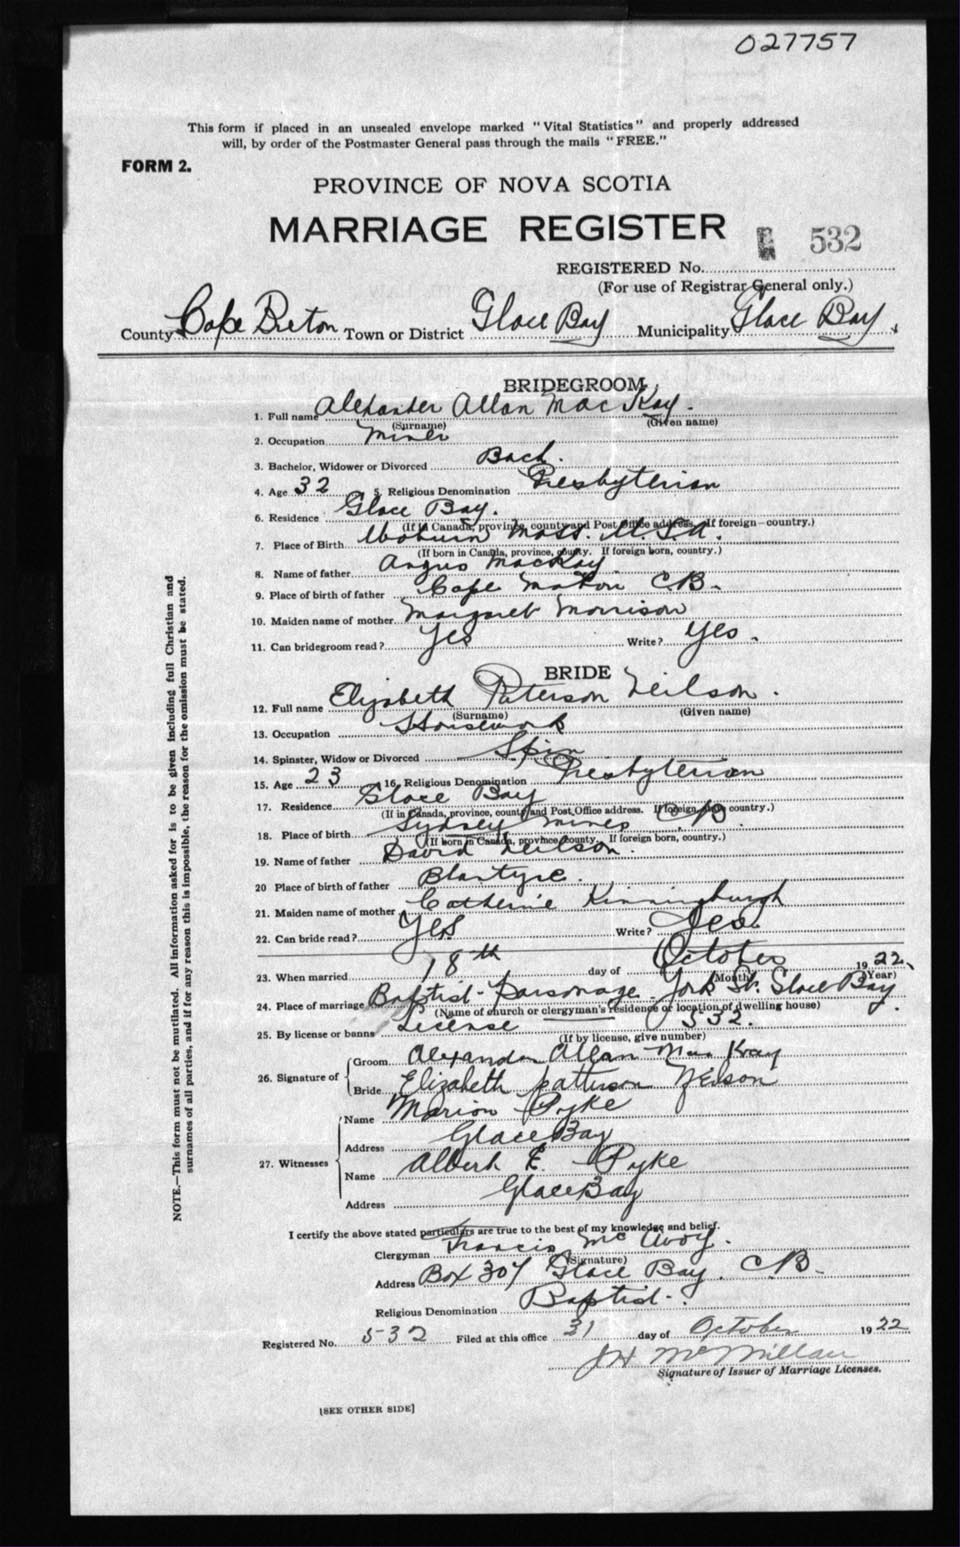 027757
This form if placed in an unsealed envelope marked "Vital Statistics" and properly addressed
will, by order of the Postmaster General pass through the mails "FREE."
FORM 2.
PROVINCE OF NOVA SCOTIA
MARRIAGE REGISTER
532
REGISTERED No.
(For use of Registrar General only.)
County Cape Breton Town or District Glace Bay Municipality Glace Bay
BRIDEGROOM
1. Full name Alexander Allan MacKay.
(Surname) (Given name)
2. Occupation Miner
3. Bachelor, Widower or Divorced Bach.
4. Age 32 5. Religious Denomination Presbyterian
6. Residence Glace Bay.
(If in Canada, province, county and Post Office address. If foreign—country.)
7. Place of Birth Woburn Mass. U.S.A.
(If born in Canada, province, county. If foreign born, country.)
8. Name of father Angus MacKay
9. Place of birth of father Cape Mabou C.B.
10. Maiden name of mother Margaret Morrison
11. Can bridegroom read? Yes Write? Yes.
BRIDE
12. Full name Elizabeth Paterson Neilson.
(Surname) (Given name)
13. Occupation Housework
14. Spinster, Widow or Divorced Spin
15. Age 23 16. Religious Denomination Presbyterian
17. Residence Glace Bay
(If in Canada, province, county and Post Office address. If foreign, country.)
18. Place of birth Sydney Mines C.B.
(If born in Canada, province county. If foreign born, country.)
19. Name of father David Neilson.
20 Place of birth of father Blantyre.
21. Maiden name of mother Catherine Kinningburgh
22. Can bride read? Yes Write? Yes.
23. When married 18th day of October 1922.
(Month) (Year)
24. Place of marriage Baptist Parsonage York St. Glace Bay.
(Name of church or clergyman's residence or location of dwelling house)
25. By license or banns License 532.
(If by license, give number)
26. Signature of
Groom Alexander Allan MacKay
Bride Elizabeth Patterson Neilson
27. Witnesses
Name Marion Pyke
Address Glace Bay
Name Albert E. Pyke
Address Glace Bay
I certify the above stated particulars are true to the best of my knowledge and belief.
Clergyman Francis McAvoy.
(Signature)
Address Box 307 Glace Bay. C.B.
Religious Denomination Baptist.
Registered No. 532 Filed at this office 31 day of October 1922
J H McMillan
Signature of Issuer of Marriage Licenses.
[SEE OTHER SIDE]
NOTE.—This form must not be mutilated. All information asked for is to be given including full Christian and
surnames of all parties, and if for any reason this is impossible, the reason for the omission must be stated.